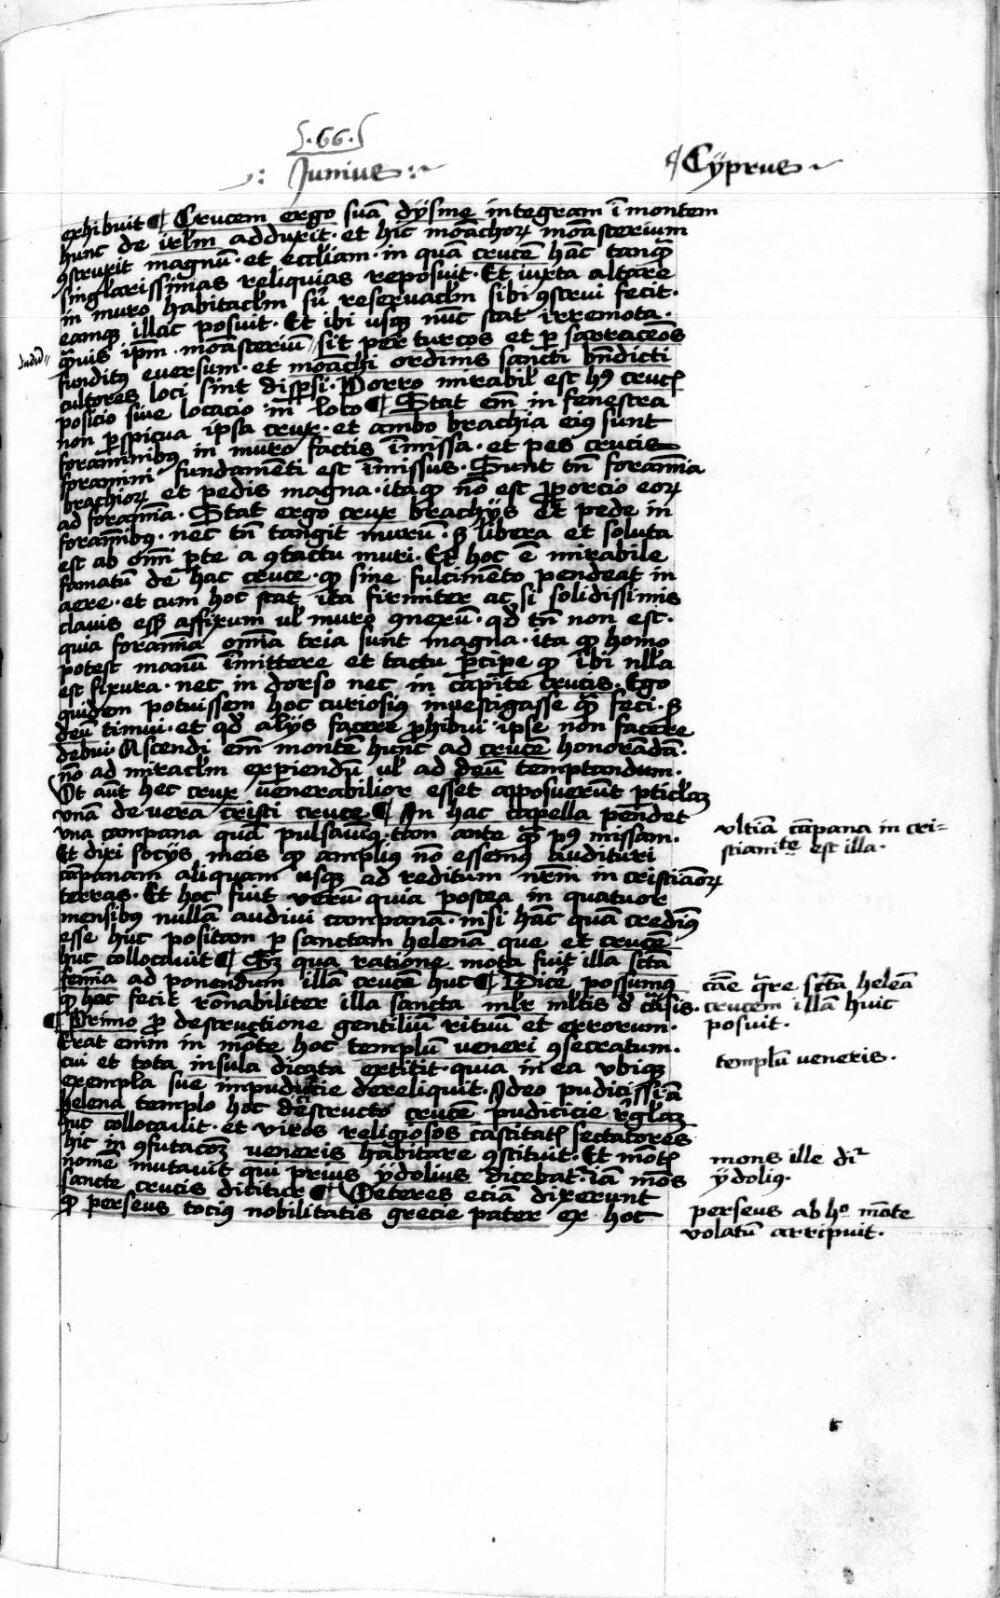 .66.
Junius
¶ Cÿprus
exhibuit ¶ Crucem ergo suā dÿsme integram ī montem
hunc de irłm adduxit · et hic mōachoꝝ mōasterium
ꝯstruxit magnū · et eccłiam · in quā crucē hāc tanqꝫ
singlarissimas reliquias reposuit · Et iuxta altare
in muro habitacłm sū reseruacłm sibi ꝯstrui fecit ·
eamqꝫ illac posuit · Et ibi usqꝫ nūc stat irremota ·
qͣuis ip̄m · mōasteriū sit per turcos et ꝑ sarracenos
funditꝰ euersum · et mōachi ordinis sancti bn̄dicti
cultores loci sint disꝑsi · Porro mirabił est hꝰ crucꝭ
posicio siue locacio in̄ loco ¶ Stat em̄ in fenestra
non ꝑspicua ipsa crux · et ambo brachia eiꝰ sunt
foraminibꝰ in muro factis īmissa · et pes crucis
foramini fundamēti est īmissus · Sunt tn̄ foram̄ia
brachioꝝ et pedis magna · ita qꝫ nō est ꝓporcio eoꝝ
ad foram̄ia · Stat ergo crux brachijs et pede in
foram̄ibꝰ · nec tn̄ tangit murū · sꝫ libera et soluta
est ab om̄i ꝑte a ꝯtactu muri · Et hoc ē mirabile
famatū de hac cruce · qꝫ sine fulcimēto pendeat in
aere · et cum hoc stat ita firmiter ac si solidissimis
clauis eēt affixum uł muro ꝯnexū · qd̄ tn̄ non est ·
quia foram̄ia om̄ia tria sunt magna · ita qꝫ homo
potest manū īmittere et tactu ꝑciꝑe qꝫ ibi nłła
est fixura · nec in dorso nec in capite crucis · Ego
quidem potuissem hoc curiosiꝰ inuestigasse qͣ feci · sꝫ
deū timui · et qd̄ alijs facere ꝓhibui ipse non facere
debui Ascendi em̄ montē hunc ad crucē honorādā ·
nō ad miracłm expiendū uł ad deū temptandum ·
Vt aūt hec crux uenerabilior esset apposuerūt ꝑticłaꝫ
vnā de vera cristi cruce ¶ In hac capella pendet
vna campana quā pulsauiꝰ · tam ante qͣ pꝰ missam ·
Et dixi socÿs meis qꝫ ampliꝰ nō essemꝰ audituri
cāpanam aliquam usqꝫ ad reditum nr̄m in cristianoꝝ
terras · Et hoc fuit verū quia postea in quatuor
mensibꝰ nullā audiui campanā · nisi hāc quā credimꝰ
esse huc positam ꝑ sanctam helenā que et crucē
huc collocauit ¶ Sꝫ qua ratione mota fuit illa sctā
fem̄ia ad ponendum illā crucē huc ¶ Dicē possumꝰ
qꝫ hoc fecit rōnabiliter illa sancta mlr młtis d̄ cāsis ·
¶ Primo ꝑ destructione gentiliū rituū et errorum ·
Erat enim in mōte hoc templū ueneri ꝯsecratum ·
cui et tota insula dicata extitit · quia in ea vbiqꝫ
exempla sue impudicicie dereliquit · Adeo pudicissīa
helena templo hoc destructo crucē pudicicie rḡłaꝫ
huc collocauit · et viros religiosos castitatꝭ sectatores
hic in ꝯfutacōꝫ ueneris habitare ꝯstituit · Et mōtꝭ
nomē mutauit qui prius ÿdolius dicebatᷣ · iā mōs
sancte crucis dicitur ¶ Veteres eciā dixerunt
qꝫ perseus tociꝰ nobilitatis grecie pater ex hoc
vltīa cāpana in cri=
stianite est illa ·
cāe qͣre sctā helēa
crucem illā huic
posuit ·
templū ueneris ·
mons ille dr̄
ÿdoliꝰ ·
perseus ab hͦ mōte
volatū arripuit ·